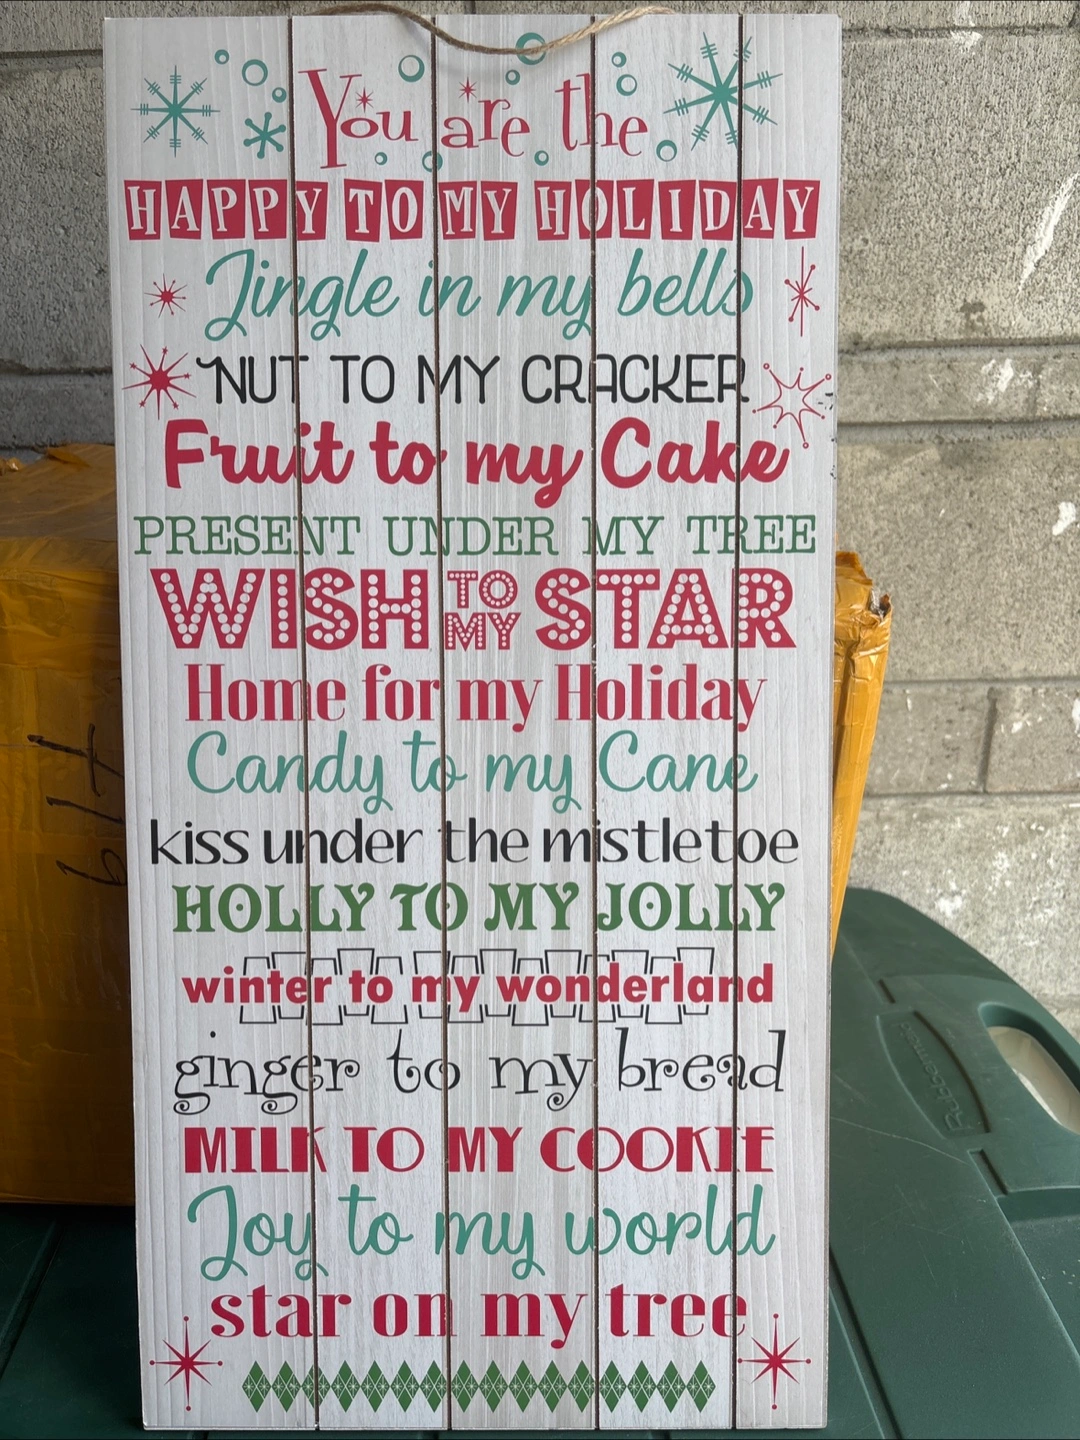 You are the
HAPPY TO MY HOLIDAY
Jingle in my bells
NUT TO MY CRACKER
Fruit to my Cake
PRESENT UNDER MY TREE
WISH TO MY STAR
Home for my Holiday
Candy to my Cane
kiss under the mistletoe
HOLLY TO MY JOLLY
winter to my wonderland
ginger to my bread
MILK TO MY COOKIE
Joy to my world
star on my tree
Rubbermaid